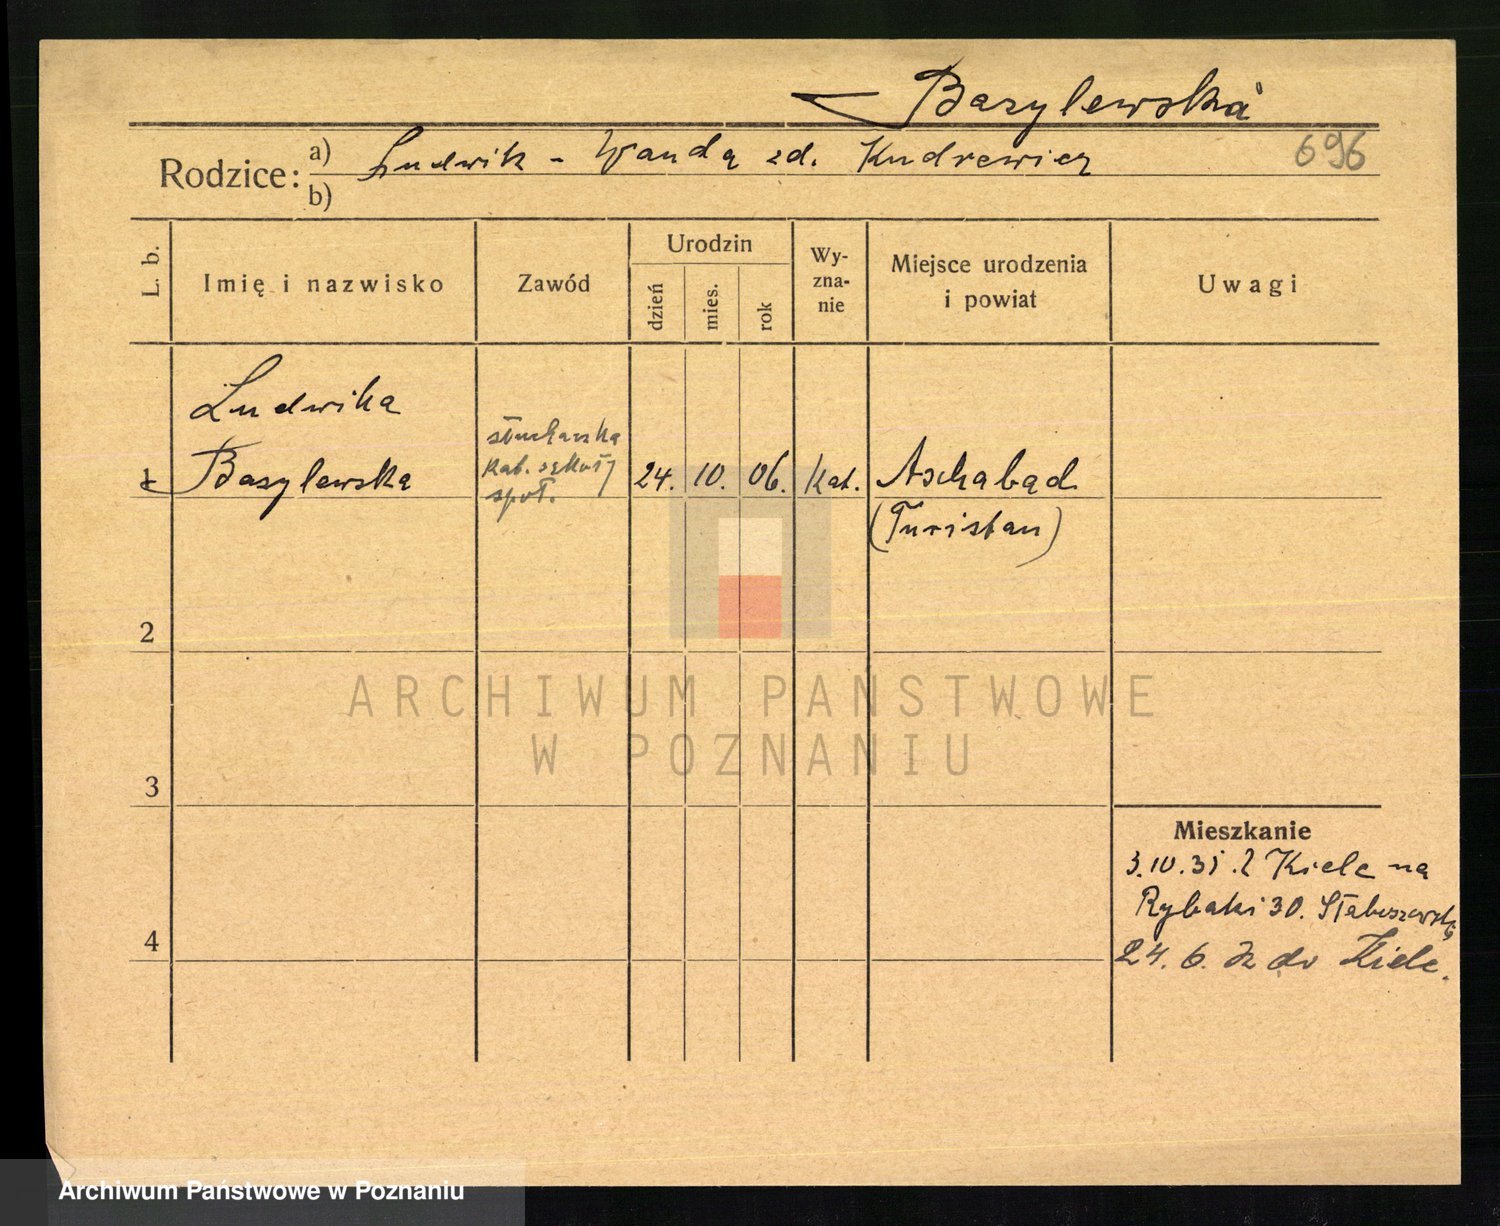 Bazylewska
Rodzice: a) Ludwik - Wanda zd. Kudrewicz
b)
696
L. b.
Imię i nazwisko
Zawód
Urodzin
dzień
mies.
rok
Wy-
zna-
nie
Miejsce urodzenia
i powiat
Uwagi
Ludwika
1 Bazylewska
słuchaczka
kat. szkoły
społ.
24. 10. 06. Kat. Aschabad
(Turistan)
2
3
4
Mieszkanie
3.10.31. z Kielc na
Rybaki 30. Słaboszewski
24. 6. do Kielc.
ARCHIWUM PAŃSTWOWE
W POZNANIU
Archiwum Państwowe w Poznaniu